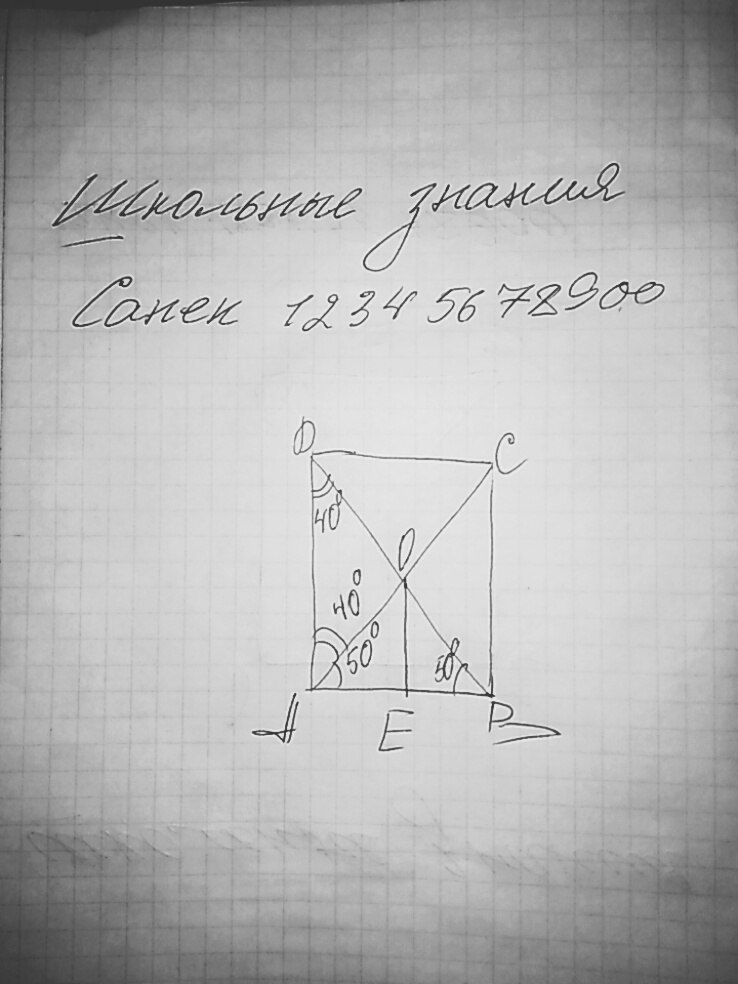 Школьные знания
Санек 12345678900
D
C
40°
O
40°
50°
50°
A
E
B